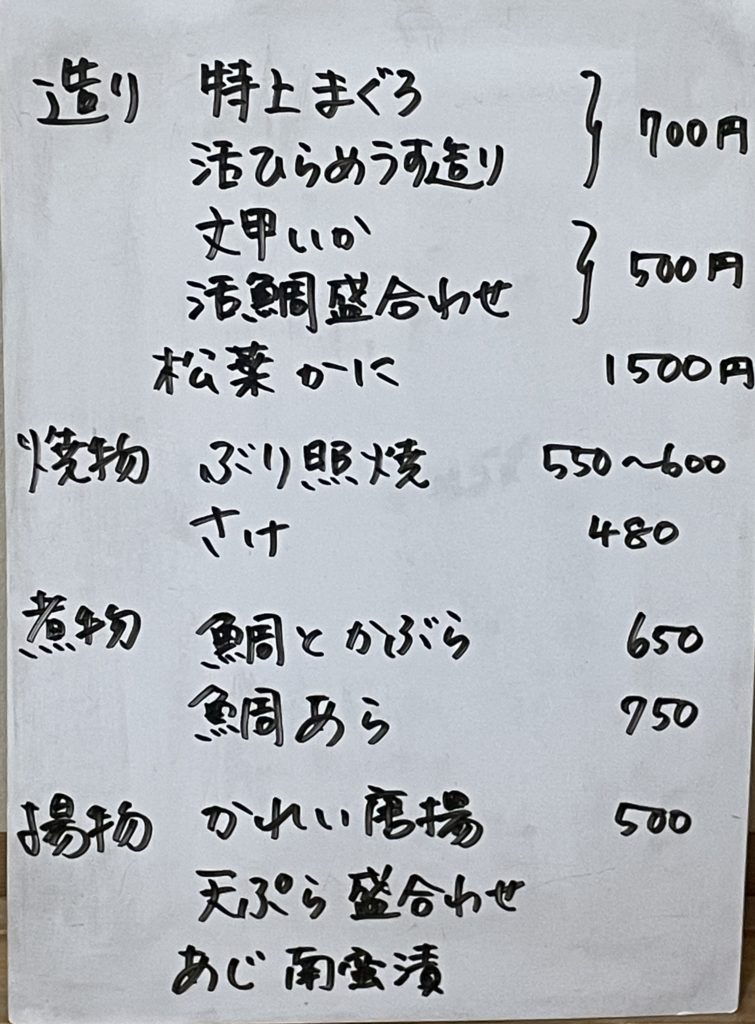 造り 特上まぐろ 700円
活ひらめうす造り
文甲いか 500円
活鯛盛合わせ
松葉かに 1500円
焼物 ぶり照焼 550~600
さけ 480
煮物 鯛とかぶら 650
鯛あら 750
揚物 かれい唐揚 500
天ぷら盛合わせ
あじ南蛮漬